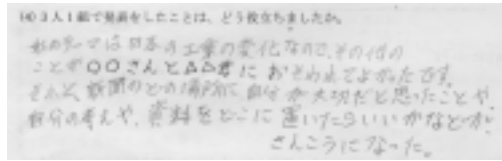 (4) 3人1組で発表をしたことは、どう役立ちましたか。
私のテーマは日本の工業の変化なので、その他の
ことが〇〇さんと△△君におそわれてよかったです。
そんと、新聞のどの場所に自分が大切だと思ったことや、
自分の考えや、資料をどこに置いたらいいかなどが、
さんこうになった。